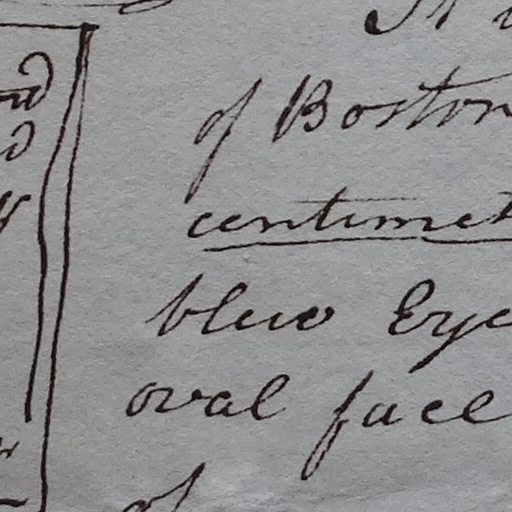 of Boston
centimet
blue Eye
oval face
of